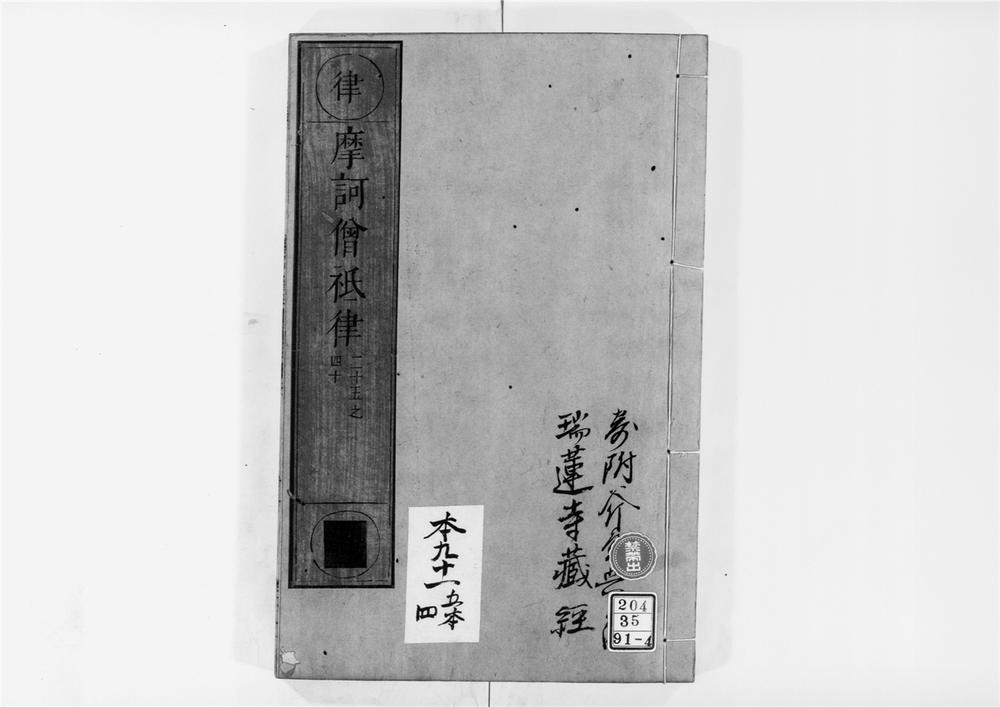 律
摩訶僧祇律
二十五之
四十
寄附
瑞蓮寺藏經
本九十一
五本
四
禁帶出
204
35
91-4